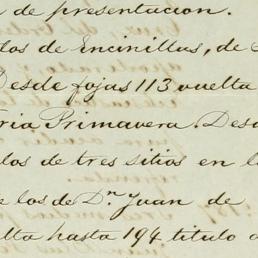 de presentacion.
los de Encinillas, de
Desde fojas 113 vuelta
ria Primavera. Desd
los de tres sitios en l
e los de Dn. Juan de
lta hasta 194 titulo d